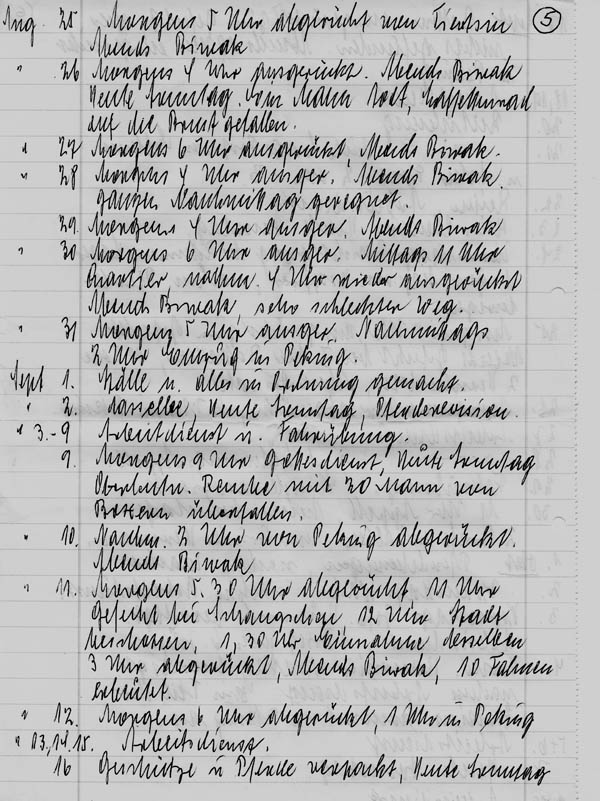 5
Aug. 25 Morgens 5 Uhr abgerückt von Tientsin
Abends Biwak
" 26 Morgens 4 Uhr ausgerückt. Abends Biwak
Heute Sonntag. Ein Mann tot, Laffettenrad
auf die Brust gefallen.
" 27 Morgens 6 Uhr ausgerückt, Abends Biwak.
" 28 Morgens 4 Uhr ausger. Abends Biwak.
ganzen Nachmittag geregnet.
29. Morgens 4 Uhr ausger. Abends Biwak
" 30 Morgens 6 Uhr ausger. Mittags 11 Uhr
Quartier nahm. 4 Uhr wieder ausgerückt
Abends Biwak, sehr schlechter Weg.
" 31 Morgens 5 Uhr ausger, Nachmittags
2 Uhr Einzug in Peking.
Sept 1. Ställe u. alles in Ordnung gemacht.
" 2. dasselbe, Heute Sonntag, Pferderevision.
" 3.-9 Arbeitdienst u. Fahrübung.
9. Morgens 9 Uhr Gottesdienst, Heute Sonntag
Oberleutn. mit 30 Mann von
Boxern überfallen.
" 10. Nachm. 2 Uhr von Peking abgerückt.
Abends Biwak
" 11. Morgens 5.30 Uhr abgerückt 11 Uhr
Gefecht bei 12 Uhr Stadt
beschossen, 1,30 Uhr Einnahme derselben
3 Uhr abgerückt, Abends Biwak, 10 Fahnen
erbeutet.
" 12. Morgens 6 Uhr abgerückt, 1 Uhr in Peking
" 13,14.15. Arbeitsdienst.
16 Geschütze u Pferde verpackt, Heute Sonntag